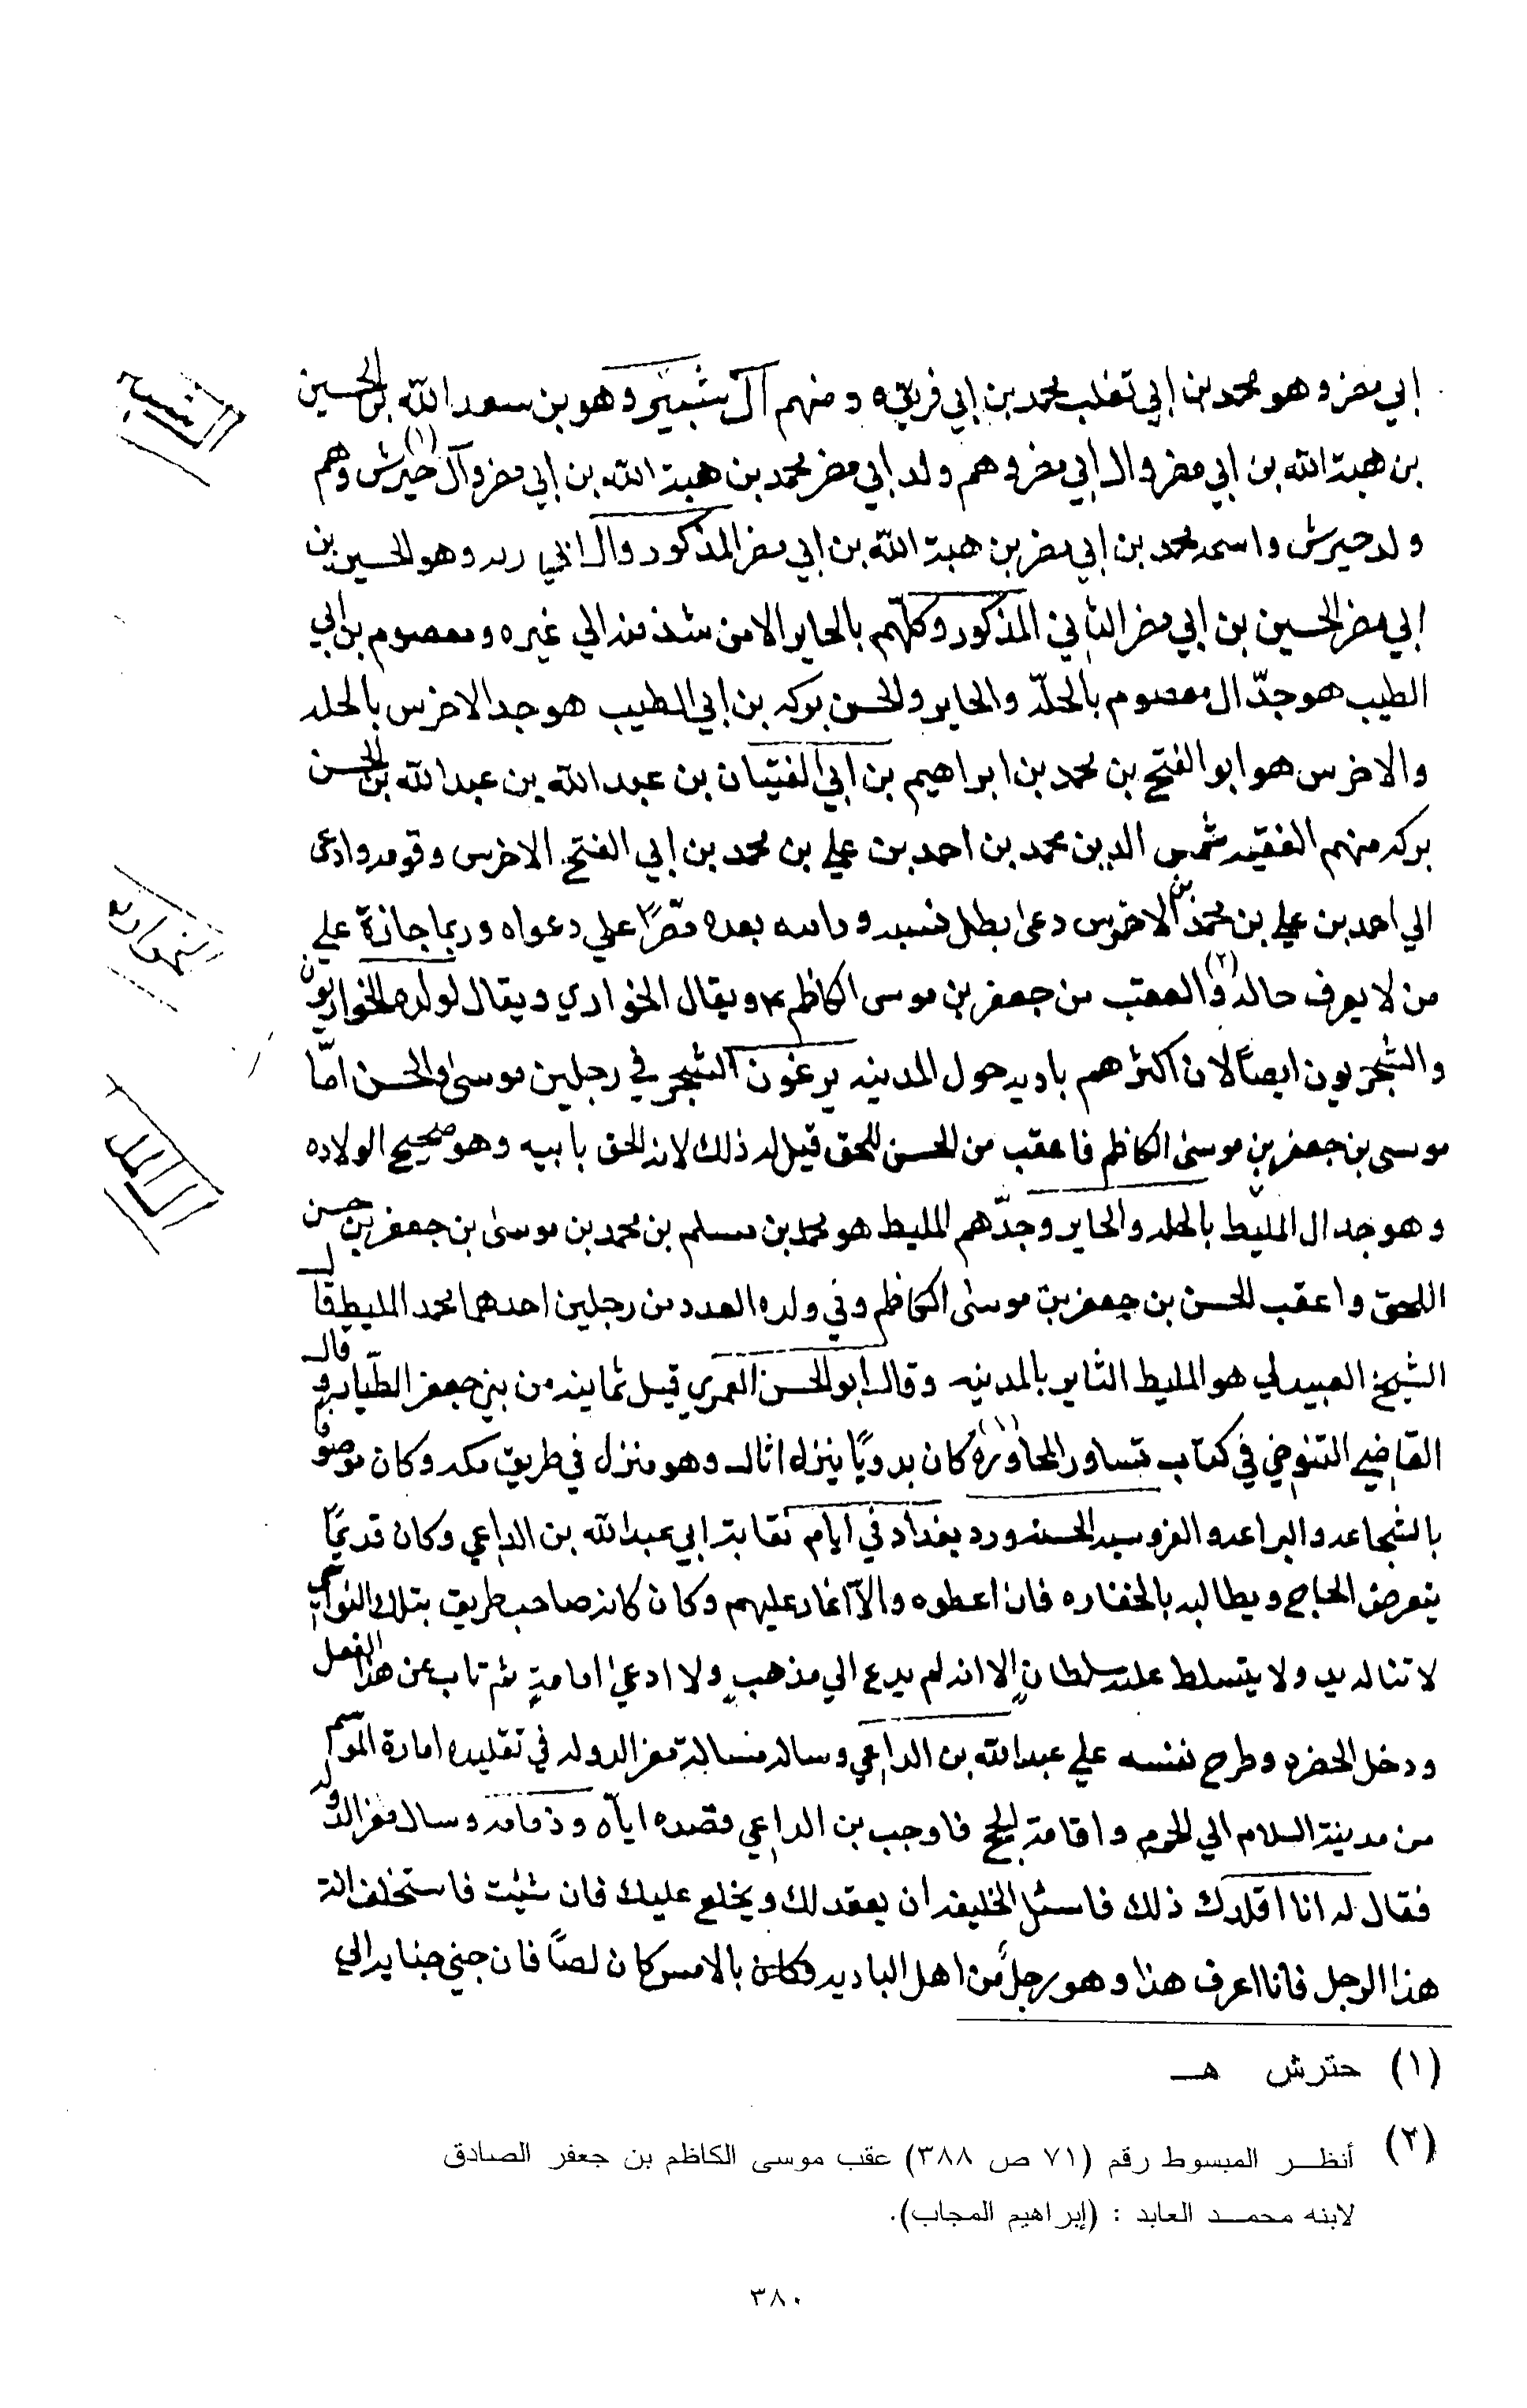 ابي مضر وهو محمد بن ابي تغلب محمد بن ابي فريق ومنهم آل شبير وهو بن سعد الله بن الحسين
بن هبة الله بن ابي مضر وال ابي مضر وهم ولد ابي مضر محمد بن هبة الله بن ابي مضر وآل حيرش (١) وهم
ولد حيرش واسمه محمد بن ابي مضر بن هبة الله بن ابي مضر المذكور وال ابي ريه وهو الحسين بن
ابي مضر الحسين بن ابي مضر الثاني المذكور وكلهم بالحاير الا من شذ منه الي غيره ومعصوم بن ابي
الطيب هو جدّ ال معصوم بالحلّه والحاير والحسن بركه بن ابي الطيب هو جد الاخرس بالحله
والاخرس هو ابو الفتح بن محمد بن ابراهيم بن ابي الفتيان بن عبد الله بن عبد الله بن الحسن
بركه منهم الفقيه شمس الدين محمد بن احمد بن علي بن محمد بن ابي الفتح الاخرس وقومه وادعى
الي احمد بن علي بن محمد بن الاخرس دعى بطل نسبه وابنه بعده مصرّا علي دعواه وربما جازة علي
من لا يعرف حاله (٢) والعقب من جعفر بن موسى الكاظم ويقال الخواري ويقال لولده الخواريون
والشجريون ايضاً لان اكثرهم باديه حول المدينه يرعون الشجر في رجلين موسى والحسن امّا
موسى بن جعفر بن موسى الكاظم فاعقب من الحسن اللحق قيل له ذلك لانه لحق بابيه وهو صحيح الولاده
وهو جد ال المليط بالحله والحاير وجدّهم المليط هو محمد بن مسلم بن محمد بن موسى بن جعفر بن حسن
اللحق واعقب الحسن بن جعفر بن موسى الكاظم وفي ولده العدد من رجلين احدهما محمد المليط قال
الشيخ العبيدلي هو المليط الثاير بالمدينه وقال ابو الحسن العمري قيل ثمانيه من بني جعفر الطيار وقال
القاضي التنوخي في كتاب نشاور المحاورة (١) كان بدويّا ينزل اثال وهو منزل في طريق مكه وكان موصوفا
بالشجاعه والبراعه والفروسيه الحسنه ورد بغداد في ايام نقابة ابي عبد الله بن الداعي وكان قديمّا
يتعرض الحاج ويطالبه بالخفاره فان اعطوه والّا اغار عليهم وكان كانه صاحب طريق بتلك النواحي
لا تناله يد ولا يتسلط عليه سلطان الا انه لم يدع الي مذهب ولا ادعى امامةٍ ثم تاب عن هذا الفعل
ودخل الحضره وطرح نفسه علي عبد الله بن الداعي وساله مسالة معز الدوله في تقليده امارة الموسم
من مدينة السلام الي الحرم واقامة الحج فاوجب بن الداعي قصده ايآه وذمامه وسال معز الدوله
فقال له انا اقلدك ذلك فاسئل الخليفه ان يعقد لك ويخلع عليك فان شئت فاستخلف انت
هذا الرجل فانا اعرف هذا وهو رجل من اهل الباديه وكان بالامس كان لصّا فان جني جنايه الي
(١) حترش هـ
(٢) أنظر المبسوط رقم (٧١ ص ٣٨٨) عقب موسى الكاظم بن جعفر الصادق
لابنه محمد العابد : (إبراهيم المجاب).
٣٨٠